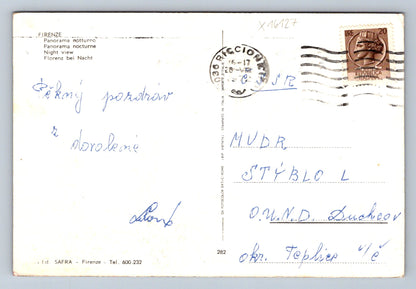 x 16127
FIRENZE
Panorama notturno
Panorama nocturne
Night view
Florenz bei Nacht
RICCIONE
16-17
LIRE 20
ČSSR
Pěkný pozdrav
z dovolené
MUDR
STÝBLO L
O.U.N.Z. Duchcov
okr. Teplice v/č
SAFRA - Firenze - Tel. 600.232
282